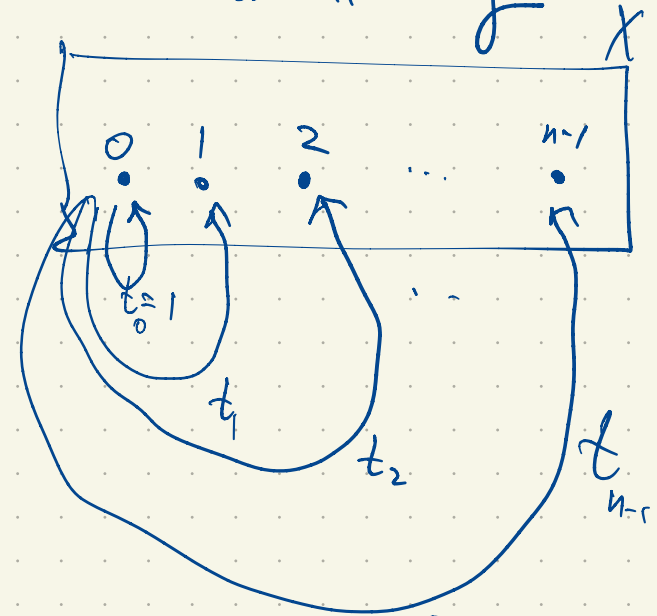 X
0 1 2 ... n-1
t₀=1
...
t₁
t₂
tₙ₋₁